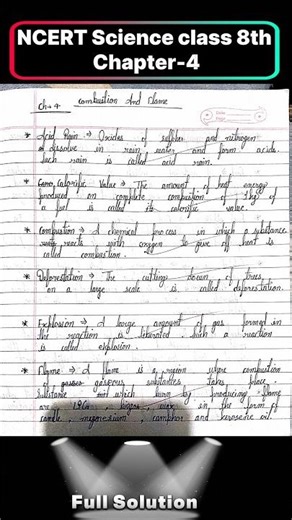 NCERT Science class 8th
Chapter-4
Ch-4 Combustion And Flame
Date
Page
* Acid Rain → Oxides of sulpher and nitrogen
dissolve in rain water and form acids.
Such rain is called acid rain.
* Calorific Value → The amount of heat energy
produced on complete combustion of 1kg of
a fuel is called its calorific value.
* Combustion → A chemical process in which a substance
reacts with oxygen to give off heat is
called combustion.
* Deforestation → The cutting down of trees
on a large scale is called deforestation.
* Explosion → A large amount of gas formed in
the reaction is liberated, such a reaction
is called explosion.
* Flame → A flame is a region where combustion
of gaseous substances takes place.
substance which burn by producing flame
are LPG, wax in the form of
candle, magnesium, camphor and kerosene oil.
Full Solution